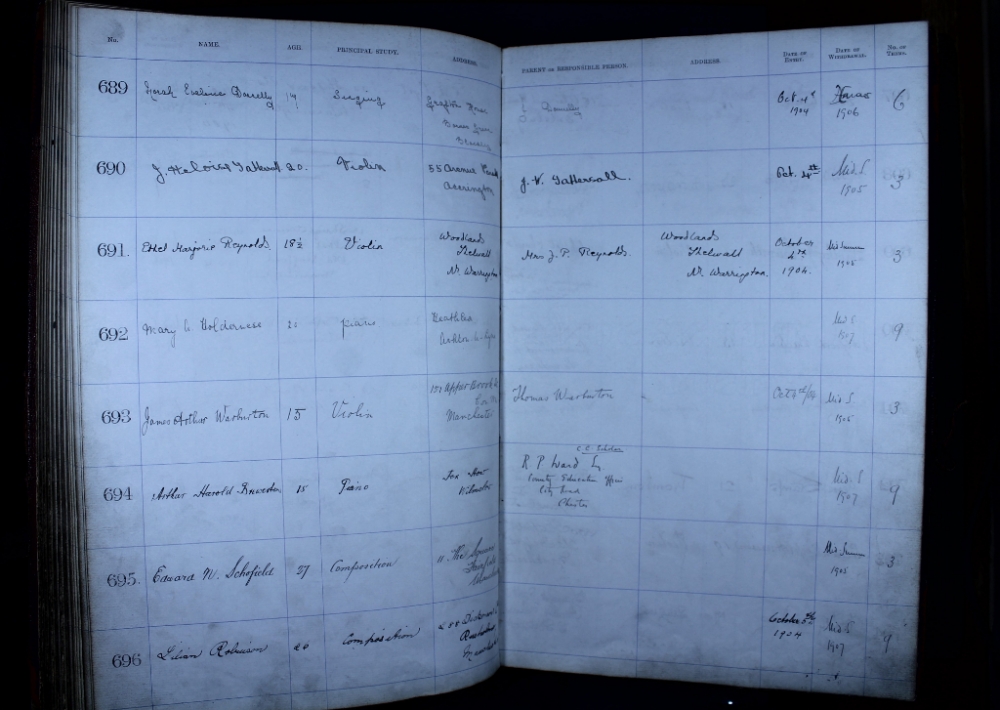 No. NAME. AGE. PRINCIPAL STUDY. ADDRESS. PARENT OR RESPONSIBLE PERSON. ADDRESS. DATE OF ENTRY. DATE OF WITHDRAWAL. NO. OF TERMS.
689 Norah Eveline Donelly 19 Singing Donelly Oct. 4th 1904 Xmas 1906 6
690 J. Heloise Tattersall 20. Violin 55 Avenue Accrington J. V. Tattersall. Oct. 4th Mid. S 1905 3
691. Ethel Marjorie Reynolds 18½ Violin Woodlands Thelwall Nr. Warrington Mrs J. P. Reynolds. Woodlands Thelwall Nr. Warrington October 4th 1904. Mid Summer 1905 3
692 Mary Holderness 20 piano Mid S 1907 9
693 James Arthur Warburton 15 Violin Upper Brook Manchester Thomas Warburton Oct 4th/04 Mid. S 1905 3
694 Arthur Harold 15 Piano Wilmslow R P Ward County Education City Road Chester Mid. S 1907 9
695. Edward W. Schofield 27 Composition 11. The Square Mid Summer 1905 3
696 Lilian Robinson 20 Composition October 5th 1904 Mid S 1907 9